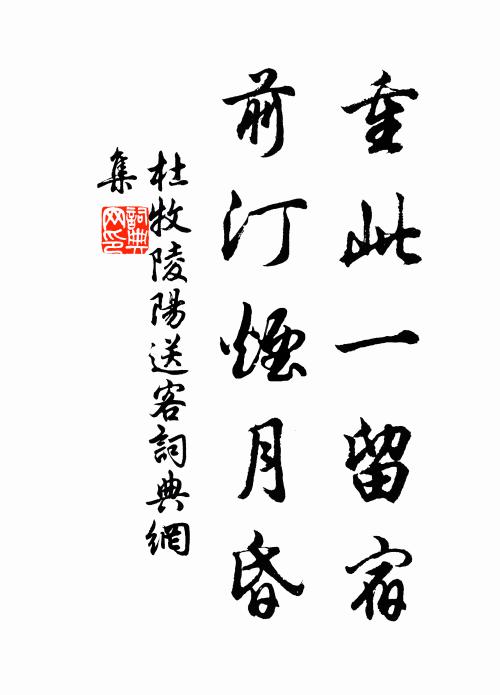 重此一留宿
前汀煙月昏
杜牧陵陽送客詞典網
集
詞典
网印